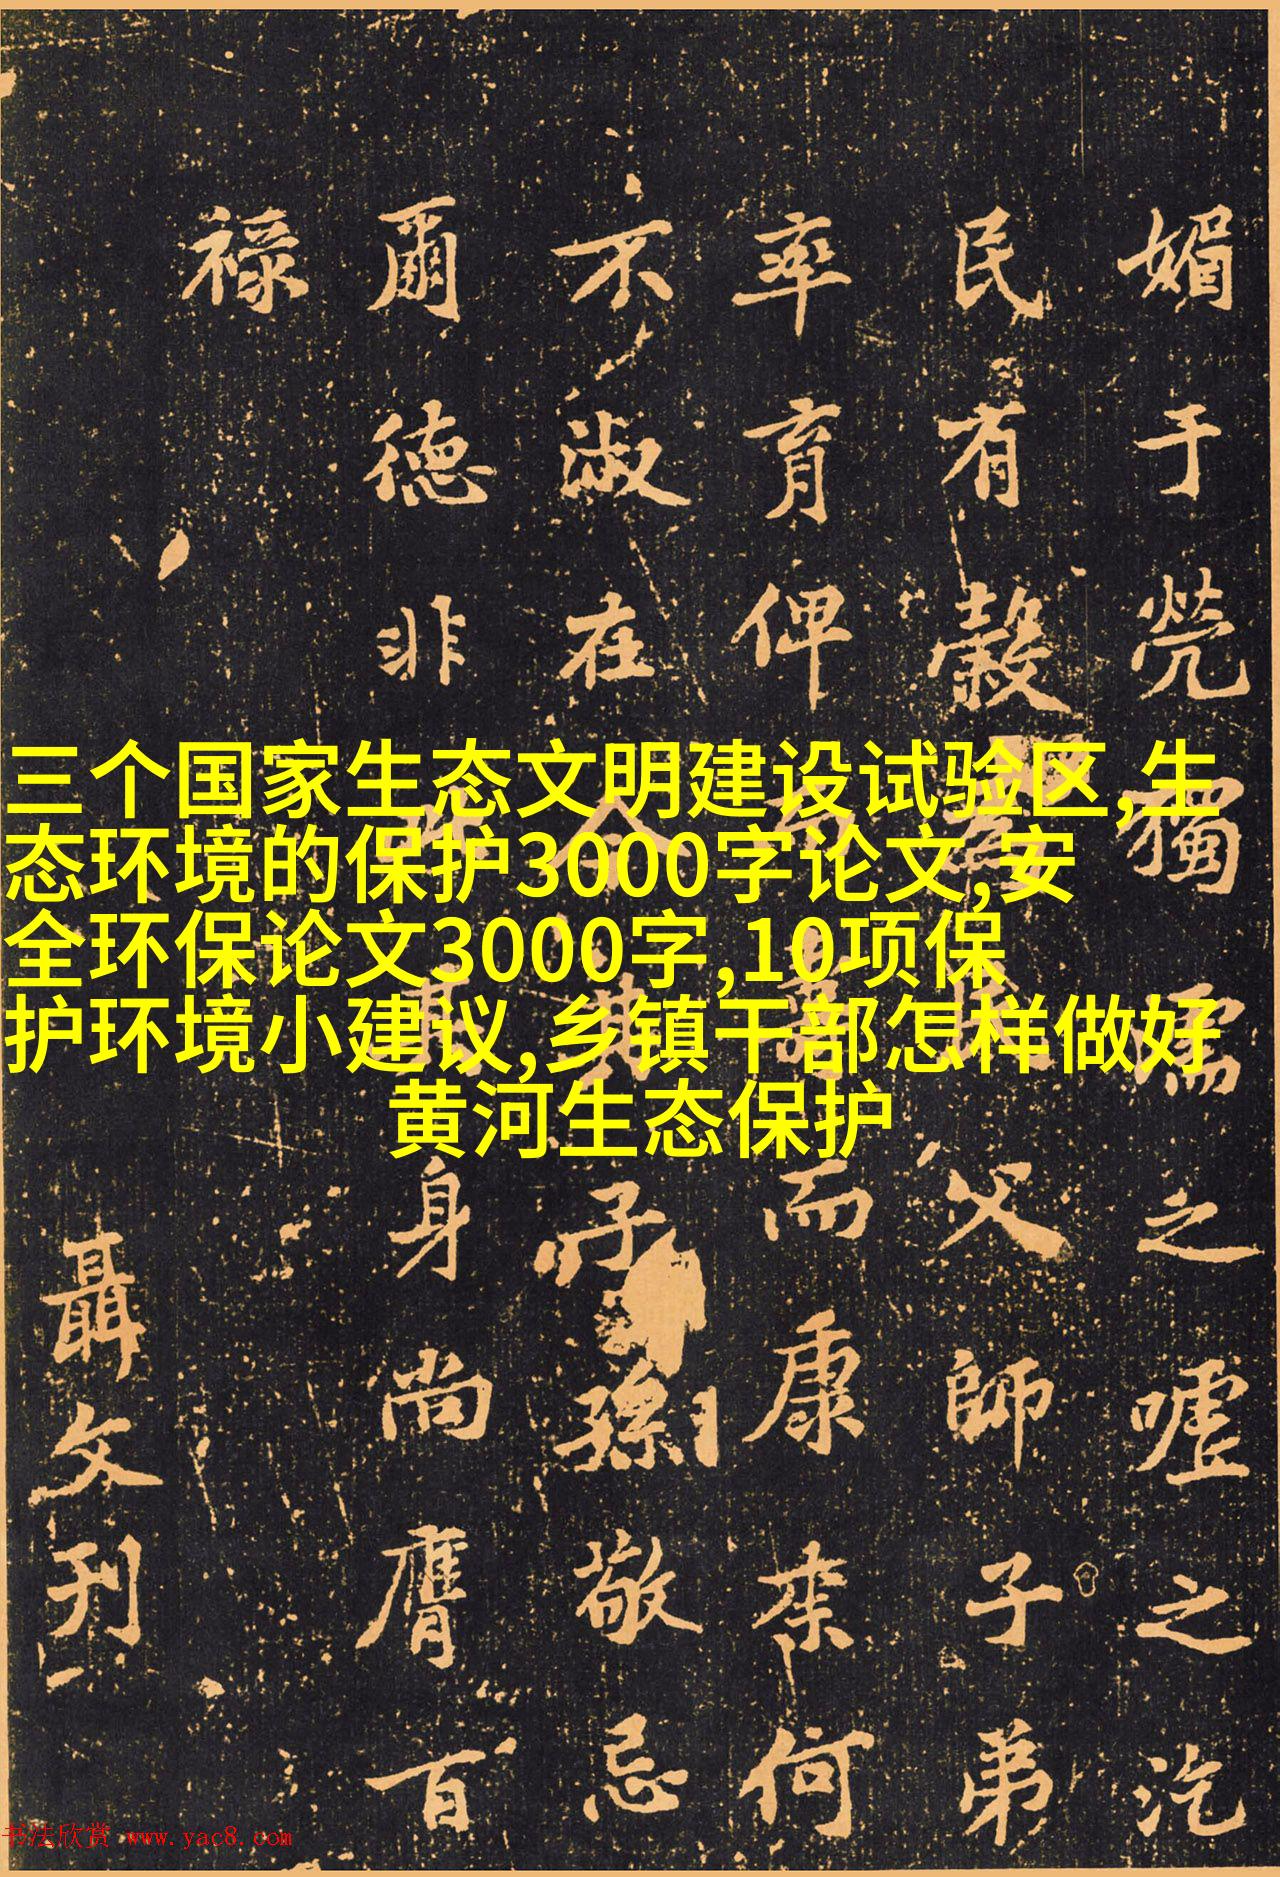 媚于煢獨濡之嘘之汔
民有穀父師子弟
率育俾而康来何
不淑在今子孫敬忌
爾德非身尚膺百
禄
聶文刊
三个国家生态文明建设试验区,生
态环境的保护3000字论文,安
全环保论文3000字,10项保
护环境小建议,乡镇干部怎样做好
黄河生态保护
书法欣赏 www.yac8.com